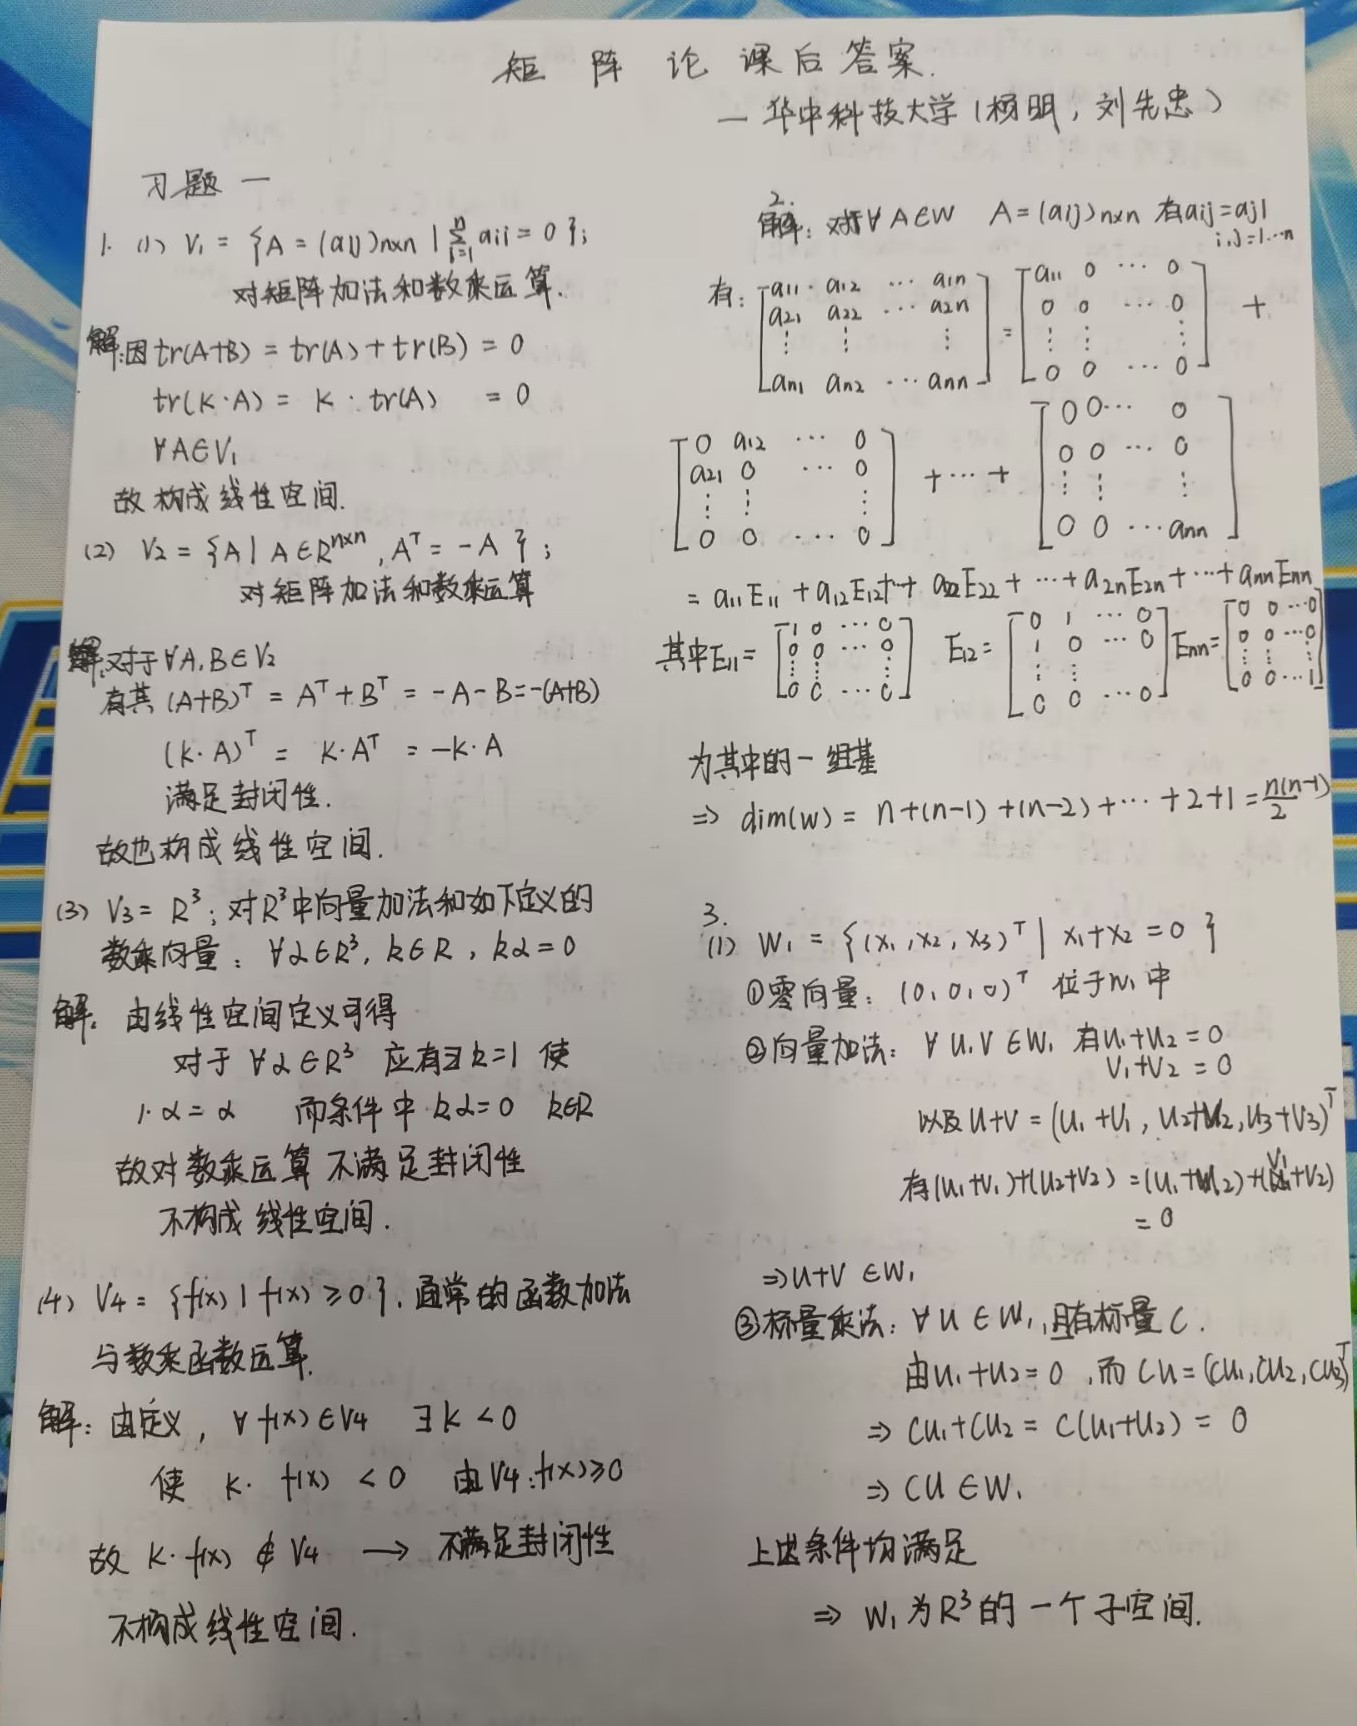 矩 阵 论 课后答案.
— 华中科技大学(杨明,刘先忠)
习题 一
1. (1) V₁ = {A = (aij)n×n | ∑ⁿᵢ₌₁ aii = 0 };
对矩阵加法和数乘运算.
解:因 tr(A+B) = tr(A) + tr(B) = 0
tr(K·A) = K · tr(A) = 0
∀A∈V₁
故 构成 线性空间.
(2) V₂ = {A | A∈Rⁿˣⁿ, Aᵀ = -A };
对矩阵加法和数乘运算
解:对于∀A,B∈V₂
有其 (A+B)ᵀ = Aᵀ+Bᵀ = -A-B=-(A+B)
(k·A)ᵀ = K·Aᵀ = -K·A
满足封闭性.
故也构成线性空间.
(3) V₃ = R³; 对R³中向量加法和如下定义的
数乘向量: ∀α∈R³, k∈R, kα=0
解. 由线性空间定义可得
对于 ∀α∈R³ 应有∃k=1 使
1·α = α 而条件中 kα=0 k∈R
故对数乘运算不满足封闭性
不构成线性空间.
(4) V₄ = {f(x) | f(x) ≥0}. 通常的函数加法
与数乘函数运算.
解: 由定义, ∀ f(x)∈V₄ ∃ k<0
使 K· f(x) < 0 由V₄:f(x)≥0
故 K·f(x) ∉ V₄ → 不满足封闭性
不构成线性空间.
2.
解: 对于∀A∈W A=(aij)n×n 有aij=aji
i,j=1…n
有: [a₁₁ a₁₂ … a₁n
a₂₁ a₂₂ … a₂n
⋮ ⋮ ⋮
an₁ an₂ … ann] = [a₁₁ 0 … 0
0 0 … 0
⋮ ⋮ ⋮
0 0 … 0] +
[0 a₁₂ … 0
a₂₁ 0 … 0
⋮ ⋮ ⋮
0 0 … 0] + … + [0 0 … 0
0 0 … 0
⋮ ⋮ ⋮
0 0 … ann]
= a₁₁E₁₁ + a₁₂E₁₂+…+ a₂₂E₂₂ + … + a₂nE₂n + … + annEnn
其中E₁₁= [1 0 … 0
0 0 … 0
⋮ ⋮ ⋮
0 0 … 0] E₁₂= [0 1 … 0
1 0 … 0
⋮ ⋮
0 0 … 0] Enn= [0 0 … 0
0 0 … 0
⋮ ⋮ ⋮
0 0 … 1]
为其中的一组基
⇒ dim(w) = n+(n-1)+(n-2)+…+2+1 = n(n-1)/2
3.
(1) W₁ = {(x₁,x₂,x₃)ᵀ | x₁+x₂=0 }
①零向量: (0,0,0)ᵀ 位于W₁中
②向量加法: ∀ u,v∈W₁ 有u₁+u₂=0
v₁+v₂=0
以及u+v = (u₁+v₁, u₂+v₂, u₃+v₃)ᵀ
有(u₁+v₁)+(u₂+v₂) = (u₁+u₂)+(v₁+v₂)
= 0
⇒u+v ∈W₁
③标量乘法: ∀ u∈W₁,且有标量 c.
由u₁+u₂=0,而 cu=(cu₁,cu₂,cu₃)ᵀ
⇒ cu₁+cu₂ = c(u₁+u₂) = 0
⇒ cu ∈W₁
上述条件均满足
⇒ W₁为R³的一个子空间.